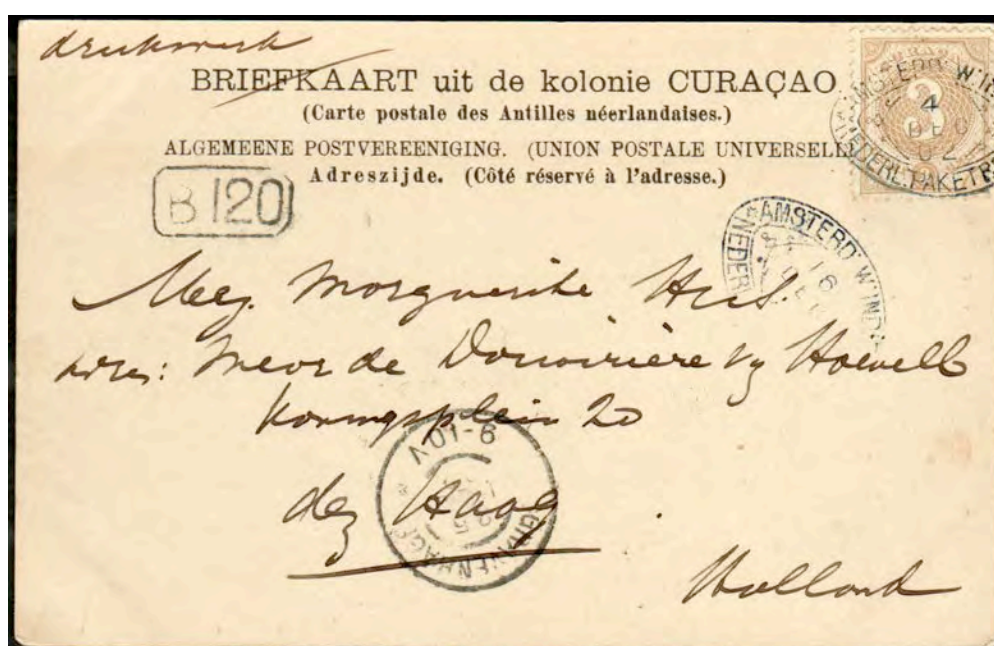 drukwerk
BRIEFKAART uit de kolonie CURAÇAO
(Carte postale des Antilles néerlandaises.)
ALGEMEENE POSTVEREENIGING. (UNION POSTALE UNIVERSELL
Adreszijde. (Côté réservé à l'adresse.)
3
AMSTERD W.IND
4
DEC
02
NEDERL.PAKETB
B 120
AMSTERD W.IND
16
NEDER
Mej. Marguerite
Mevr de Douairière v Hoevell
Koningsplein 20
9-10V
5
GRAVENHAGE
den Haag
Holland